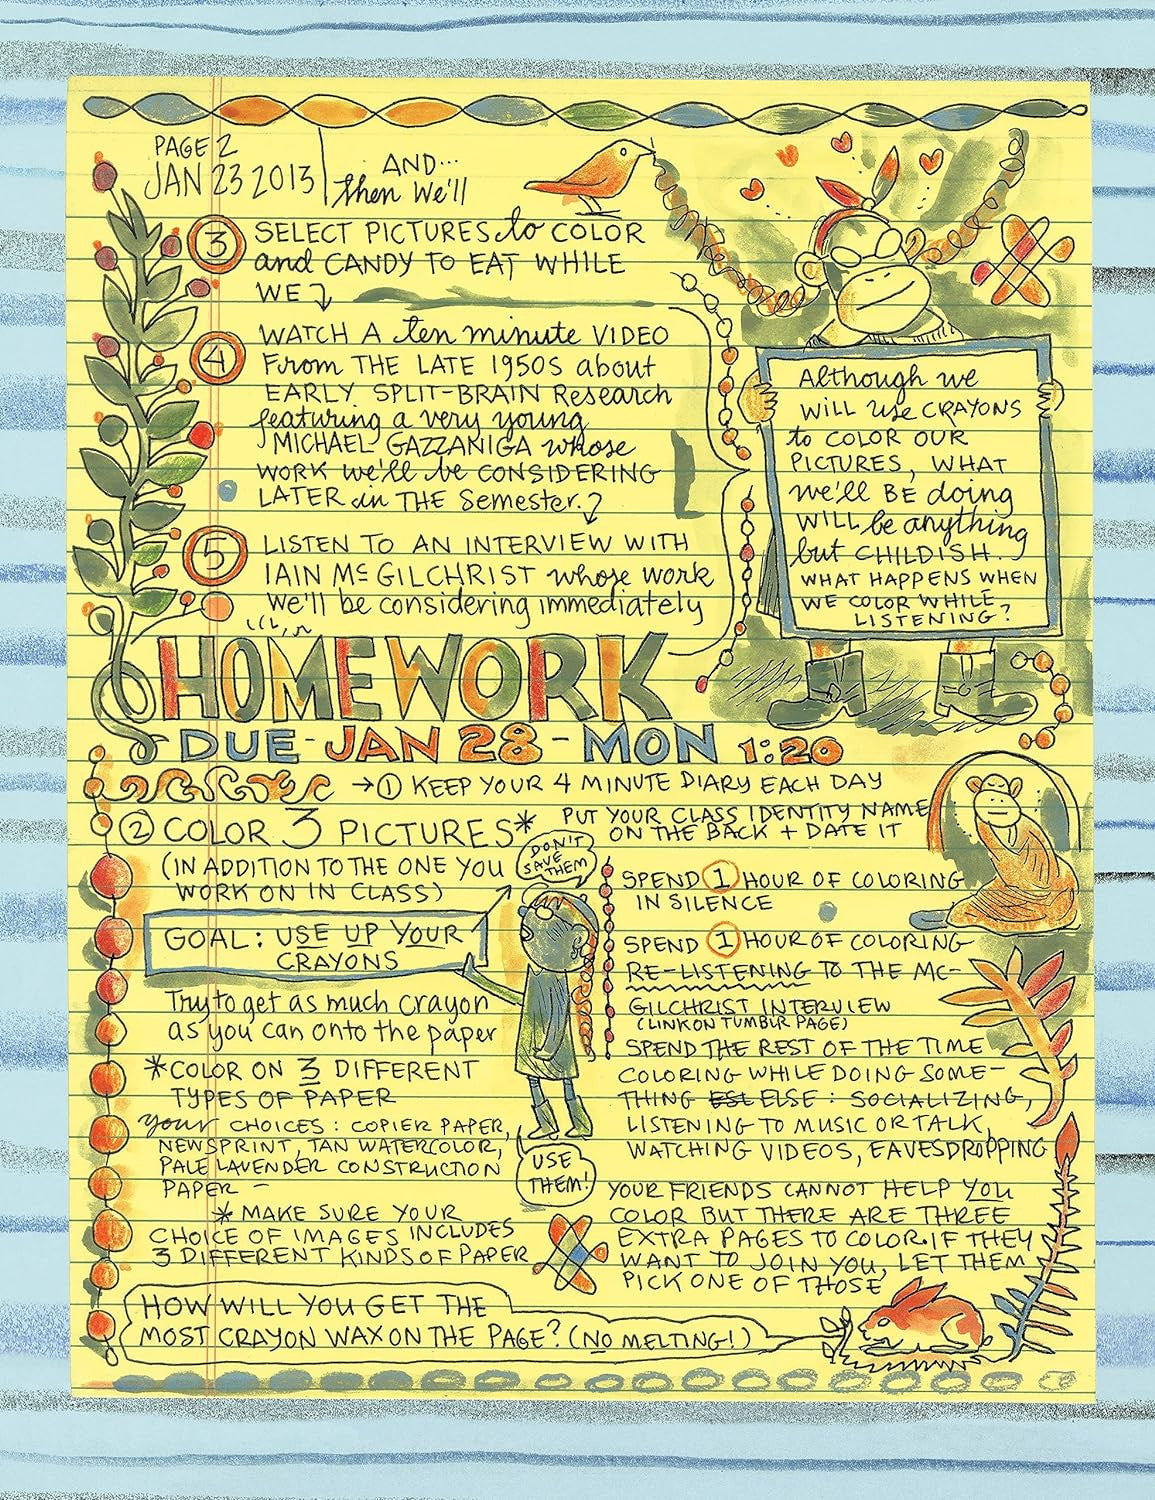 PAGE 2
JAN 23 2013
AND...
then we'll
3 SELECT PICTURES to COLOR
and CANDY TO EAT WHILE
WE
4 WATCH A ten minute VIDEO
From THE LATE 1950S about
EARLY SPLIT-BRAIN Research
featuring a very young
MICHAEL GAZZANIGA whose
WORK we'll be CONSIDERING
LATER in THE Semester.
5 LISTEN TO AN INTERVIEW WITH
IAIN McGILCHRIST whose work
We'll be considering immediately
Although we
WILL use CRAYONS
to COLOR OUR
PICTURES, WHAT
we'll BE doing
WILL be anything
but CHILDISH.
WHAT HAPPENS WHEN
WE COLOR WHILE
LISTENING?
HOMEWORK
DUE-JAN 28-MON 1:20
→① KEEP YOUR 4 MINUTE DIARY EACH DAY
② COLOR 3 PICTURES*
PUT YOUR CLASS IDENTITY NAME
ON THE BACK + DATE IT
(IN ADDITION TO THE ONE YOU
WORK ON IN CLASS)
DON'T
SAVE
THEM
GOAL: USE UP YOUR
CRAYONS
Try to get as much crayon
as you can onto the paper
*COLOR ON 3 DIFFERENT
TYPES OF PAPER
your CHOICES: COPIER PAPER,
NEWSPRINT, TAN WATERCOLOR,
PALE LAVENDER CONSTRUCTION
PAPER -
* MAKE SURE YOUR
CHOICE OF IMAGES INCLUDES
3 DIFFERENT KINDS OF PAPER
USE
THEM!
SPEND 1 HOUR OF COLORING
IN SILENCE
SPEND 1 HOUR OF COLORING
RE-LISTENING TO THE MC-
GILCHRIST INTERVIEW
(LINK ON TUMBLR PAGE)
SPEND THE REST OF THE TIME
COLORING WHILE DOING SOME-
THING ELSE: SOCIALIZING,
LISTENING TO MUSIC OR TALK,
WATCHING VIDEOS, EAVESDROPPING
YOUR FRIENDS CANNOT HELP YOU
COLOR BUT THERE ARE THREE
EXTRA PAGES TO COLOR. IF THEY
WANT TO JOIN YOU, LET THEM
PICK ONE OF THOSE
HOW WILL YOU GET THE
MOST CRAYON WAX ON THE PAGE? (NO MELTING!)